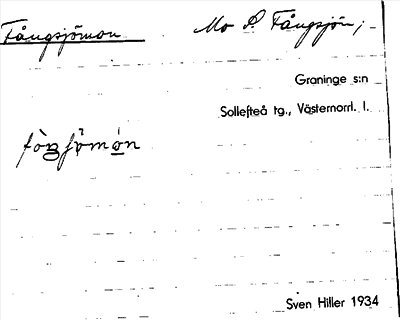 Fångsjömon Mo S. Fångsjön;
Graninge s:n
Sollefteå tg., Västernorrl. l.
Sven Hiller 1934